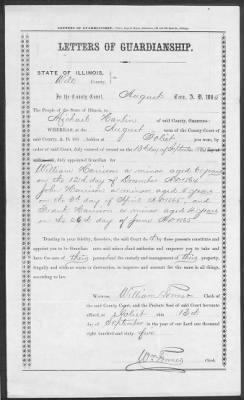 LETTERS OF GUARDIANSHIP.
STATE OF ILLINOIS,
Will County,
In the County Court, August Term, A. D. 1865
The People of the State of Illinois, to
Michael Hanlin of said County, Greeting:
WHEREAS, at the August term of the County Court
of said County, A. D. 186 Joliet you were, by
order of said Court, duly entered of record on the 13th day of September 1865
duly appointed Guardian for
William Harrison a minor aged 6 years
on the 12th day of November AD 1864
John Harrison a minor aged 5 years
on the 9d day of April AD 1865, and
Grant Harrison a minor aged 2 years
on the 26d day of June AD 1865
Trusting in your fidelity, therefore, the said Court do by these presents constitute and
appoint you to be Guardian unto said minor and authorize and empower you to take and
have the and their personal the custody and management of their property,
frugally and without waste or destruction, to improve and account for the same in all things,
according to law.
Witness, William Tonner Clerk of
the said County Court, and the Probate Seal of said Court hereunto
affixed, at Joliet this 13th
day of September in the year of our Lord one thousand
eight hundred and sixty five
Wm Tonner Clerk.